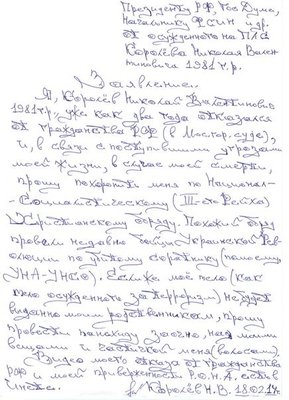 Президенту РФ, Гос Дума,
Начальнику ФСИН и др.
от осужденного на ПЛС
Королёва Николая Вален-
тиновича 1981 г.р.
Заявление.
Я, Королёв Николай Валентинович
1981 г.р., уже как два года отказался
от гражданства РФ (в Мосгор.суде),
и, в связи с поступившими угрозами
моей жизни, в случае моей смерти,
прошу похоронить меня по Национал-
-Социалистическому (III-его Рейха)
Христианскому обряду. Похожий обряд
провели недавно бойцы Украинской Рев-
олюции по убитому соратнику (
УНА-УНСО). Если же моё тело (как
тело осужденного за терроризм) не будет
выдано моим родственникам, прошу
провести панихиду заочно, над моими
вещами и частичкой меня (волосами).
Видео моего отказа от гражданства
РФ и моей приверженности Р.О.Н.А, есть в
инете.
Королёв Н.В. 18.02.14г.